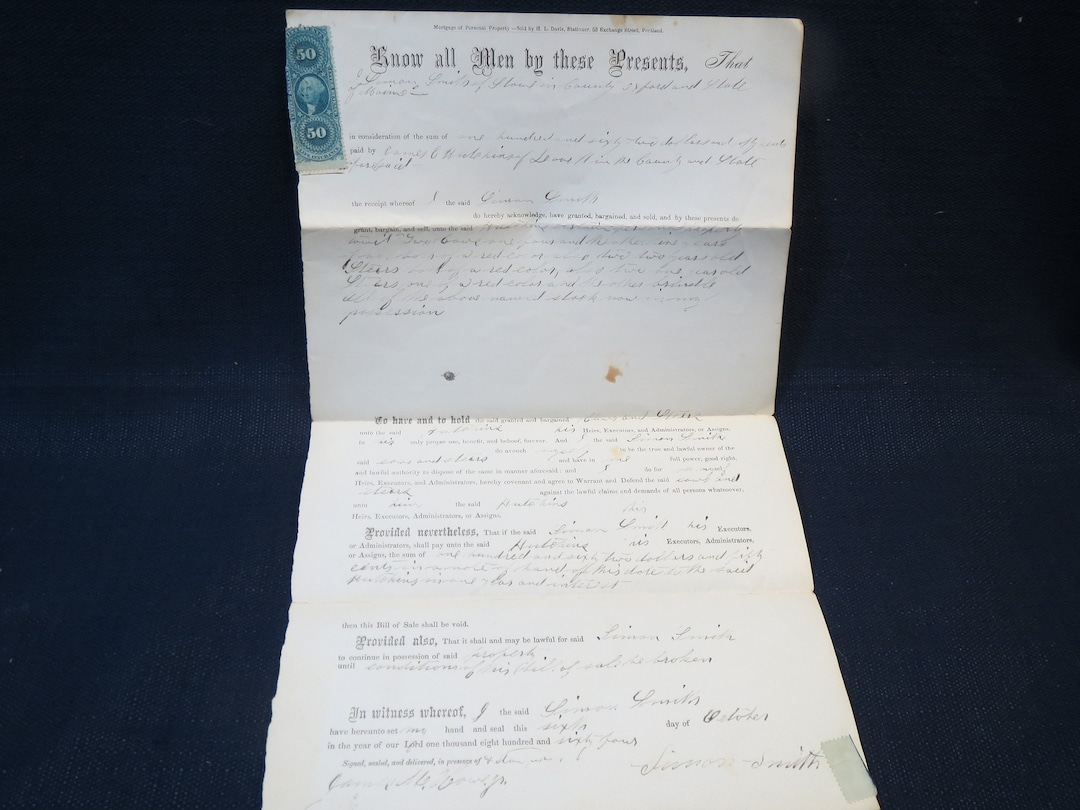 Mortgage of Personal Property.—Sold by H. L. Davis, Stationer, 53 Exchange Street, Portland.
50
50
Know all Men by these Presents, That
I Simon Smith of in County Oxford and State
of Maine
in consideration of the sum of one hundred and sixty two dollars and fifty cents
paid by James C Hutchins of in the County and State
the receipt whereof I the said Simon Smith
do hereby acknowledge, have granted, bargained, and sold, and by these presents do
grant, bargain, and sell, unto the said property
Two Cows one four and the other years
both of a red color also two two years old
Steers both of a red color, also two one year old
Steers one of a red color and the other brindle
All of the above named stock now in my
possession
To have and to hold the said granted and bargained Cows and Steers
unto the said Hutchins his Heirs, Executors, and Administrators, or Assigns,
to his only proper use, benefit, and behoof, forever. And I the said Simon Smith
do avouch myself to be the true and lawful owner of the
said cows and steers and have in me full power, good right,
and lawful authority to dispose of the same in manner aforesaid: and I do for myself
Heirs, Executors, and Administrators, hereby covenant and agree to Warrant and Defend the said cows and
steers against the lawful claims and demands of all persons whatsoever,
unto him the said Hutchins his
Heirs, Executors, Administrators, or Assigns.
Provided nevertheless, That if the said Simon Smith his Executors,
or Administrators, shall pay unto the said Hutchins his Executors, Administrators,
or Assigns, the sum of one hundred and sixty two dollars and fifty
cents in a note of hand of this date to the said
Hutchins in one year and interest
then this Bill of Sale shall be void.
Provided also, That it shall and may be lawful for said Simon Smith
to continue in possession of said property
until conditions of this bill of sale be broken
In witness whereof, I the said Simon Smith
have hereunto set my hand and seal this sixth day of October
in the year of our Lord one thousand eight hundred and sixty four
Signed, sealed, and delivered, in presence of
Simon Smith